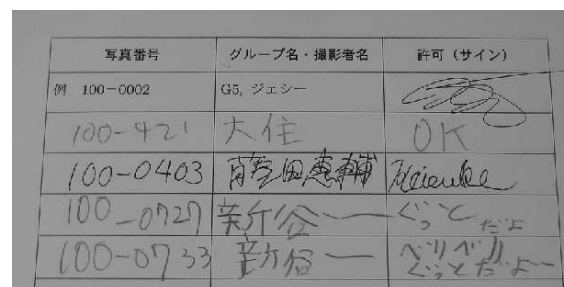 写真番号 グループ名・撮影者名 許可(サイン)
例 100-0002 G5, ジェシー
100-421 大住 OK
100-0403 藤田恵輔 Keisuke
100-0727 新谷 ぐっとだよ
100-0733 新谷 べりべりぐっとだよ